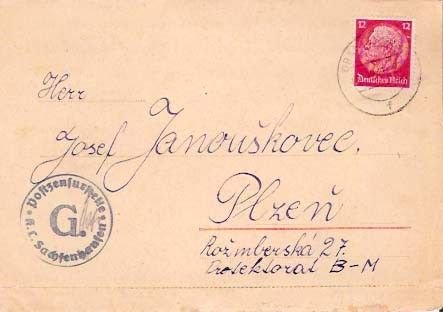 12 12
Deutsches Reich
Herr
Josef Janouškovec,
Plzeň
Rožmberská 27.
Prosektorat B-M
Postzensurstelle
G.
Sachsenhausen